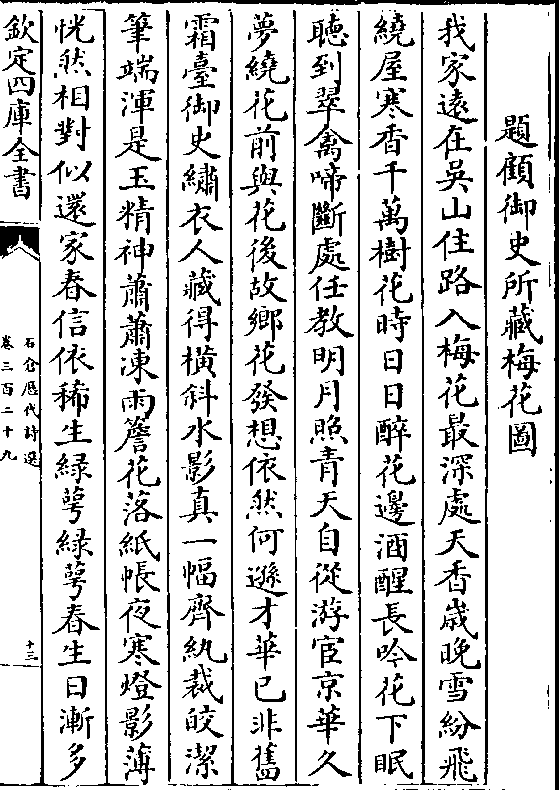 題顧御史所藏梅花圖
我家遠在吳山住路入梅花最深處天香歲晚雪紛飛
繞屋寒香千萬樹花時日日醉花邊酒醒長吟花下眠
聽到翠禽啼斷處任教明月照青天自從游宦京華久
夢繞花前與花後故鄉花發想依然何遜才華已非舊
霜臺御史繡衣人藏得橫斜水影真一幅齊紈裁皎潔
筆端渾是玉精神蕭蕭凍雨簷花落紙帳夜寒燈影薄
恍然相對似還家春信依稀生緑萼緑萼春生日漸多
欽定四庫全書
石倉歷代詩選
卷三百二十九
十三